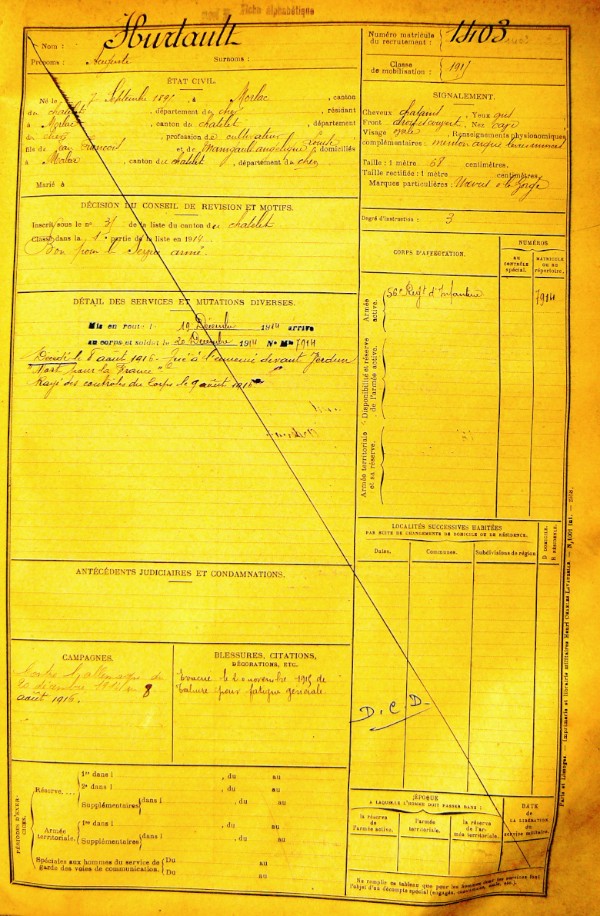 Fiche alphabétique
Nom : Hurtault
Prénoms : Auguste Surnoms :
ÉTAT CIVIL.
Né le 7 Septembre 1895 à Morlac, canton
du chatelet, département du cher, résidant
à Morlac, canton du chatelet, département
du cher, profession de cultivateur
fils de Jean François et de Louise domiciliés
à Morlac, canton du chatelet, département du cher
Marié à
DÉCISION DU CONSEIL DE REVISION ET MOTIFS.
Inscrit sous le n° 31 de la liste du canton de chatelet
Classé dans la 1e partie de la liste en 1914
Bon pour le Service armé.
DÉTAIL DES SERVICES ET MUTATIONS DIVERSES.
Mis en route l 19 Décembre 1914 arrivé
au corps et soldat le 20 Décembre 1914 N° Mle 7914
Décédé le 8 août 1916 - tué à l'ennemi devant Verdun
"Mort pour la France"
Rayé des contrôles du Corps le 9 août 1916
ANTÉCÉDENTS JUDICIAIRES ET CONDAMNATIONS.
CAMPAGNES.
Contre l'allemagne du
20 décembre 1914 au 8
août 1916.
BLESSURES, CITATIONS,
DÉCORATIONS, ETC.
Evacué le 20 novembre 1915 de
pour fatigue générale
PÉRIODES D'EXERCICES.
Réserve....
1re dans l , du au
2e dans l , du au
Supplémentaires dans l , du au
Armée territoriale.
1re dans l , du au
Supplémentaires dans l , du au
Spéciales aux hommes du service de garde des voies de communication.
Du au
Du au
Numéro matricule du recrutement : 1403
Classe de mobilisation : 1915
SIGNALEMENT.
Cheveux chatains Yeux gris
Front Nez
Visage ovale Renseignements physionomiques
complémentaires : menton
Taille : 1 mètre 68 centimètres.
Taille rectifiée : 1 mètre centimètres.
Marques particulières
Degré d'instruction : 3
CORPS D'AFFECTATION.
NUMÉROS
AU CONTRÔLE spécial.
MATRICULE OU AU répertoire.
Armée active.
56e Regt d'Infanterie 7914
Disponibilité et réserve de l'armée active.
Armée territoriale et sa réserve.
LOCALITÉS SUCCESSIVES HABITÉES
PAR SUITE DE CHANGEMENTS DE DOMICILE OU DE RÉSIDENCE.
Dates. Communes. Subdivisions de région.
D. DOMICILE.
R. RÉSIDENCE.
D.C.D.
ÉPOQUE
A LAQUELLE L'HOMME DOIT PASSER DANS :
la réserve de l'armée active.
l'armée territoriale.
la réserve de l'armée territoriale.
DATE DE LA LIBÉRATION du service militaire.
Paris et Limoges. — Imprimerie et librairie militaires Henri CHARLES-LAVAUZELLE.